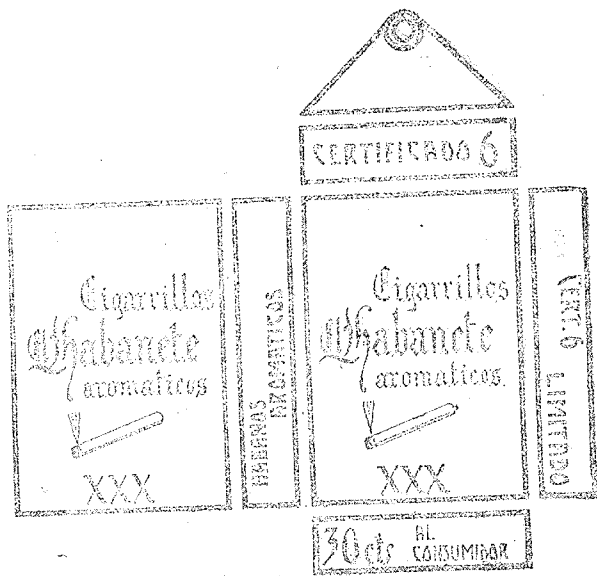 CERTIFICADO 6
Cigarrillos
Chabanete
aromaticos
XXX
HABANAS
AROMATICOS
Cigarrillos
Chabanete
aromaticos.
XXX
CERT. 6 LIMITADO
30 cts AL
CONSUMIDOR